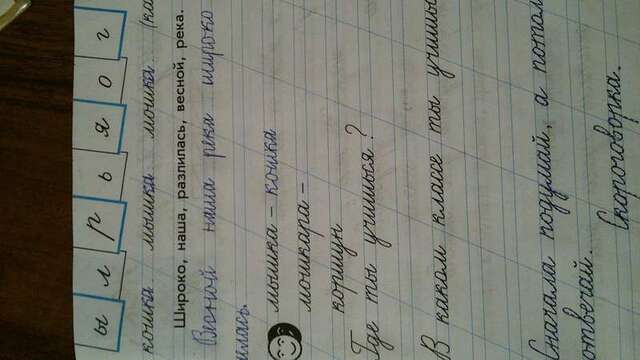 ы л р ь я о г
кошка мышка мошка (ка
Широко, наша, разлилась, весной, река.
Весной наша река широко
илась.
мышка – кошка
мошкара –
коршун
Где ты учишься?
В каком классе ты учишьс
Сначала подумай, а потом
отвечай.
Скороговорка.